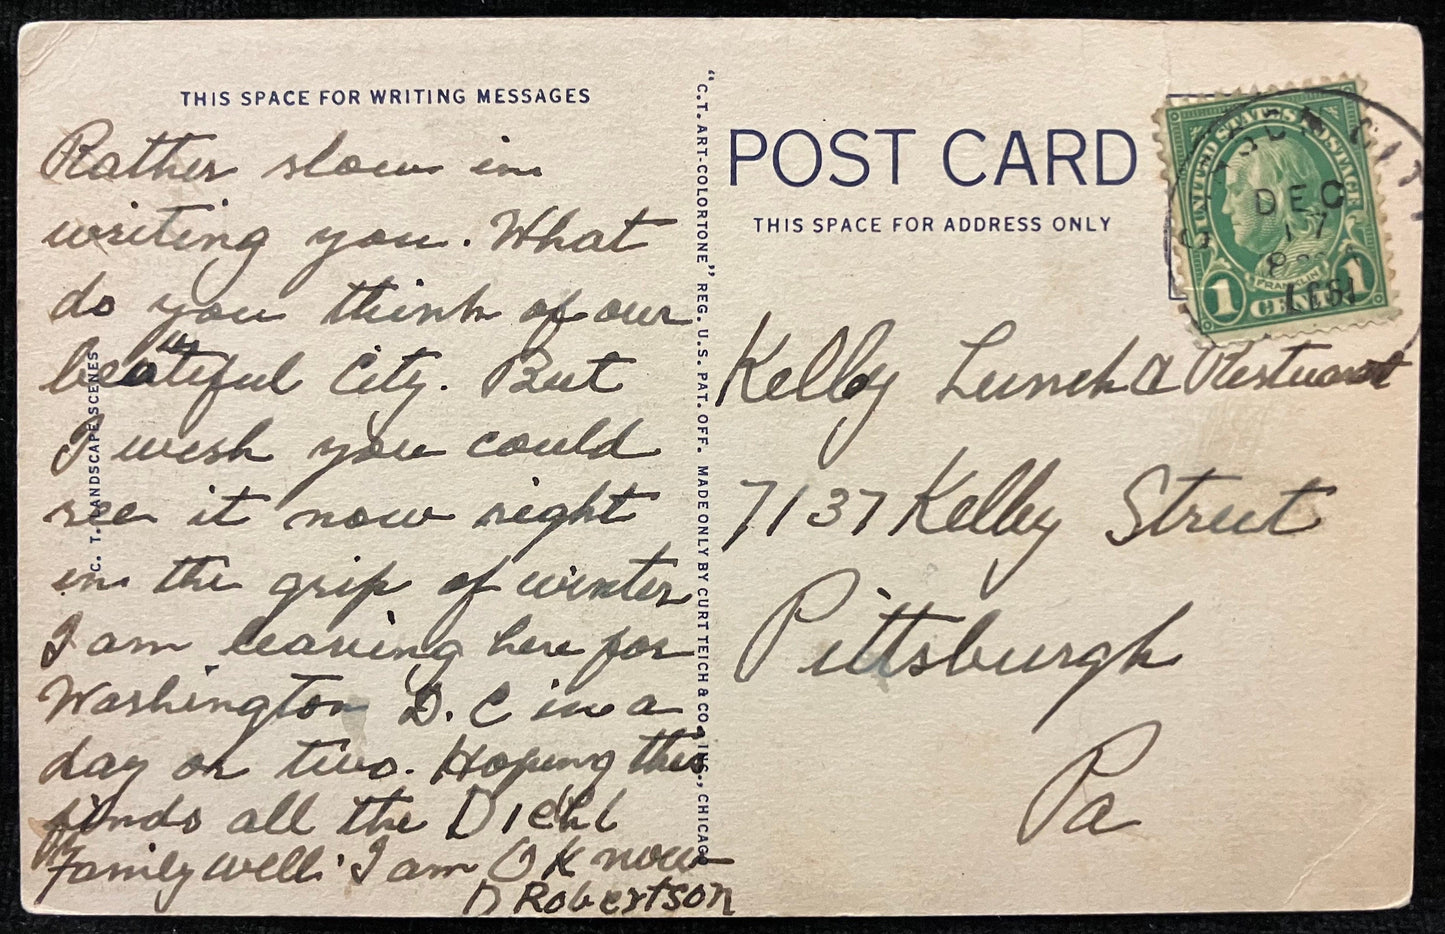 THIS SPACE FOR WRITING MESSAGES
Rather slow in
writing you. What
do you think of our
beautiful City. But
I wish you could
see it now right
in the grip of winter
I am leaving here for
Washington D.C in a
day or two. Hoping this
finds all the Diehl
Family well. I am OK now
D Robertson
C. T. LANDSCAPE SCENES
"C.T. ART-COLORTONE" REG. U.S. PAT. OFF. MADE ONLY BY CURT TEICH & CO., INC., CHICAGO
POST CARD
THIS SPACE FOR ADDRESS ONLY
UNITED STATES POSTAGE
FRANKLIN
1 CENT 1
CITY
DEC
17
8
Kelly Lunch & Resturant
7137 Kelly Street
Pittsburgh
Pa